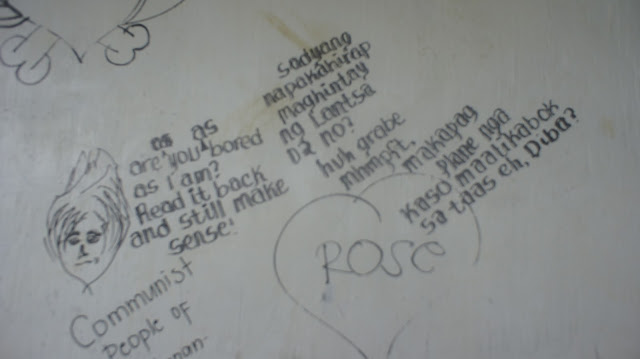 as as
are you bored
as I am?
Read it back
and still make
sense!
Communist
People of
sadyang
napakahirap
maghintay
ng Lantsa
no?
huh grabe
makapag
Plane nga
Kaso maalikabok
sa taas eh, Diba?
ROSE